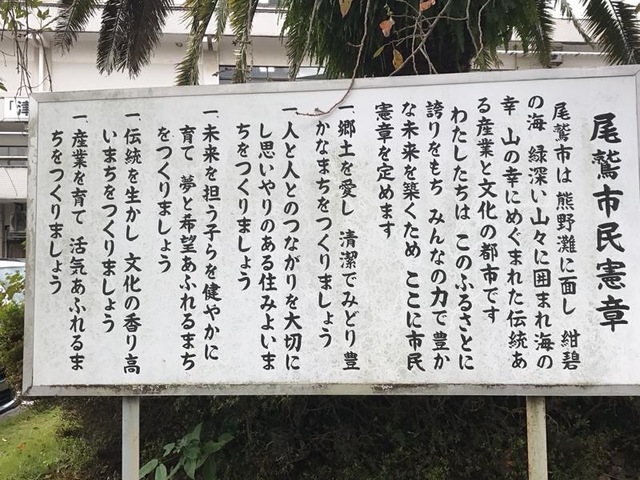 尾鷲市民憲章
尾鷲市は 熊野灘に面し 紺碧
の海 緑深い山々に囲まれ 海の
幸 山の幸にめぐまれた伝統あ
る産業と文化の都市です
わたしたちは このふるさとに
誇りをもち みんなの力で豊か
な未来を築くため ここに市民
憲章を定めます
一 郷土を愛し 清潔でみどり豊
かなまちをつくりましょう
一 人と人とのつながりを大切に
し思いやりのある住みよいま
ちをつくりましょう
一 未来を担う子らを健やかに
育て 夢と希望あふれるまち
をつくりましょう
一 伝統を生かし 文化の香り高
いまちをつくりましょう
一 産業を育て 活気あふれるま
ちをつくりましょう
津